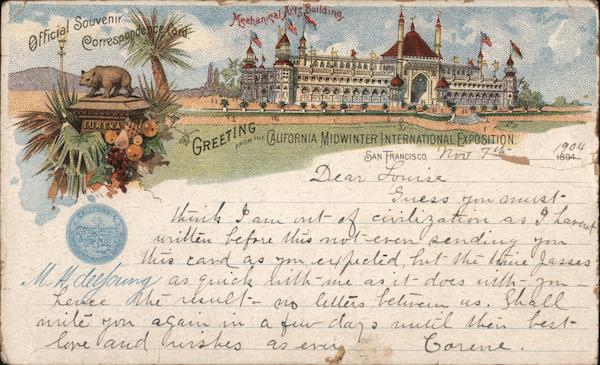 Official Souvenir
Correspondence Card
Mechanical Arts Building.
EUREKA
GREETING FROM THE CALIFORNIA MIDWINTER INTERNATIONAL EXPOSITION.
SAN FRANCISCO, Nov 7th 1904
1894.
Dear Louise
Guess you must
think I am out of civilization as I haven't
written before this not even sending you
this card as you expected, but the time passes
as quick with me as it does with you
hence the result - no letters between us. Shall
write you again in a few days until then best
love and wishes as ever Corene.
CALIFORNIA
M. H. de Young